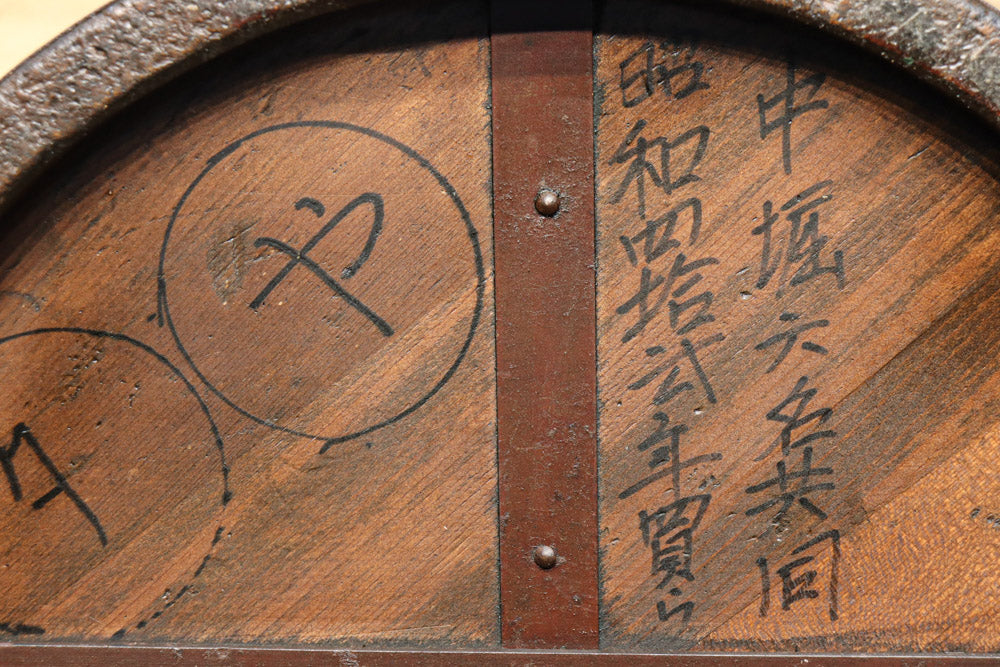 中堀六名共同
昭和四拾弐年買う
や